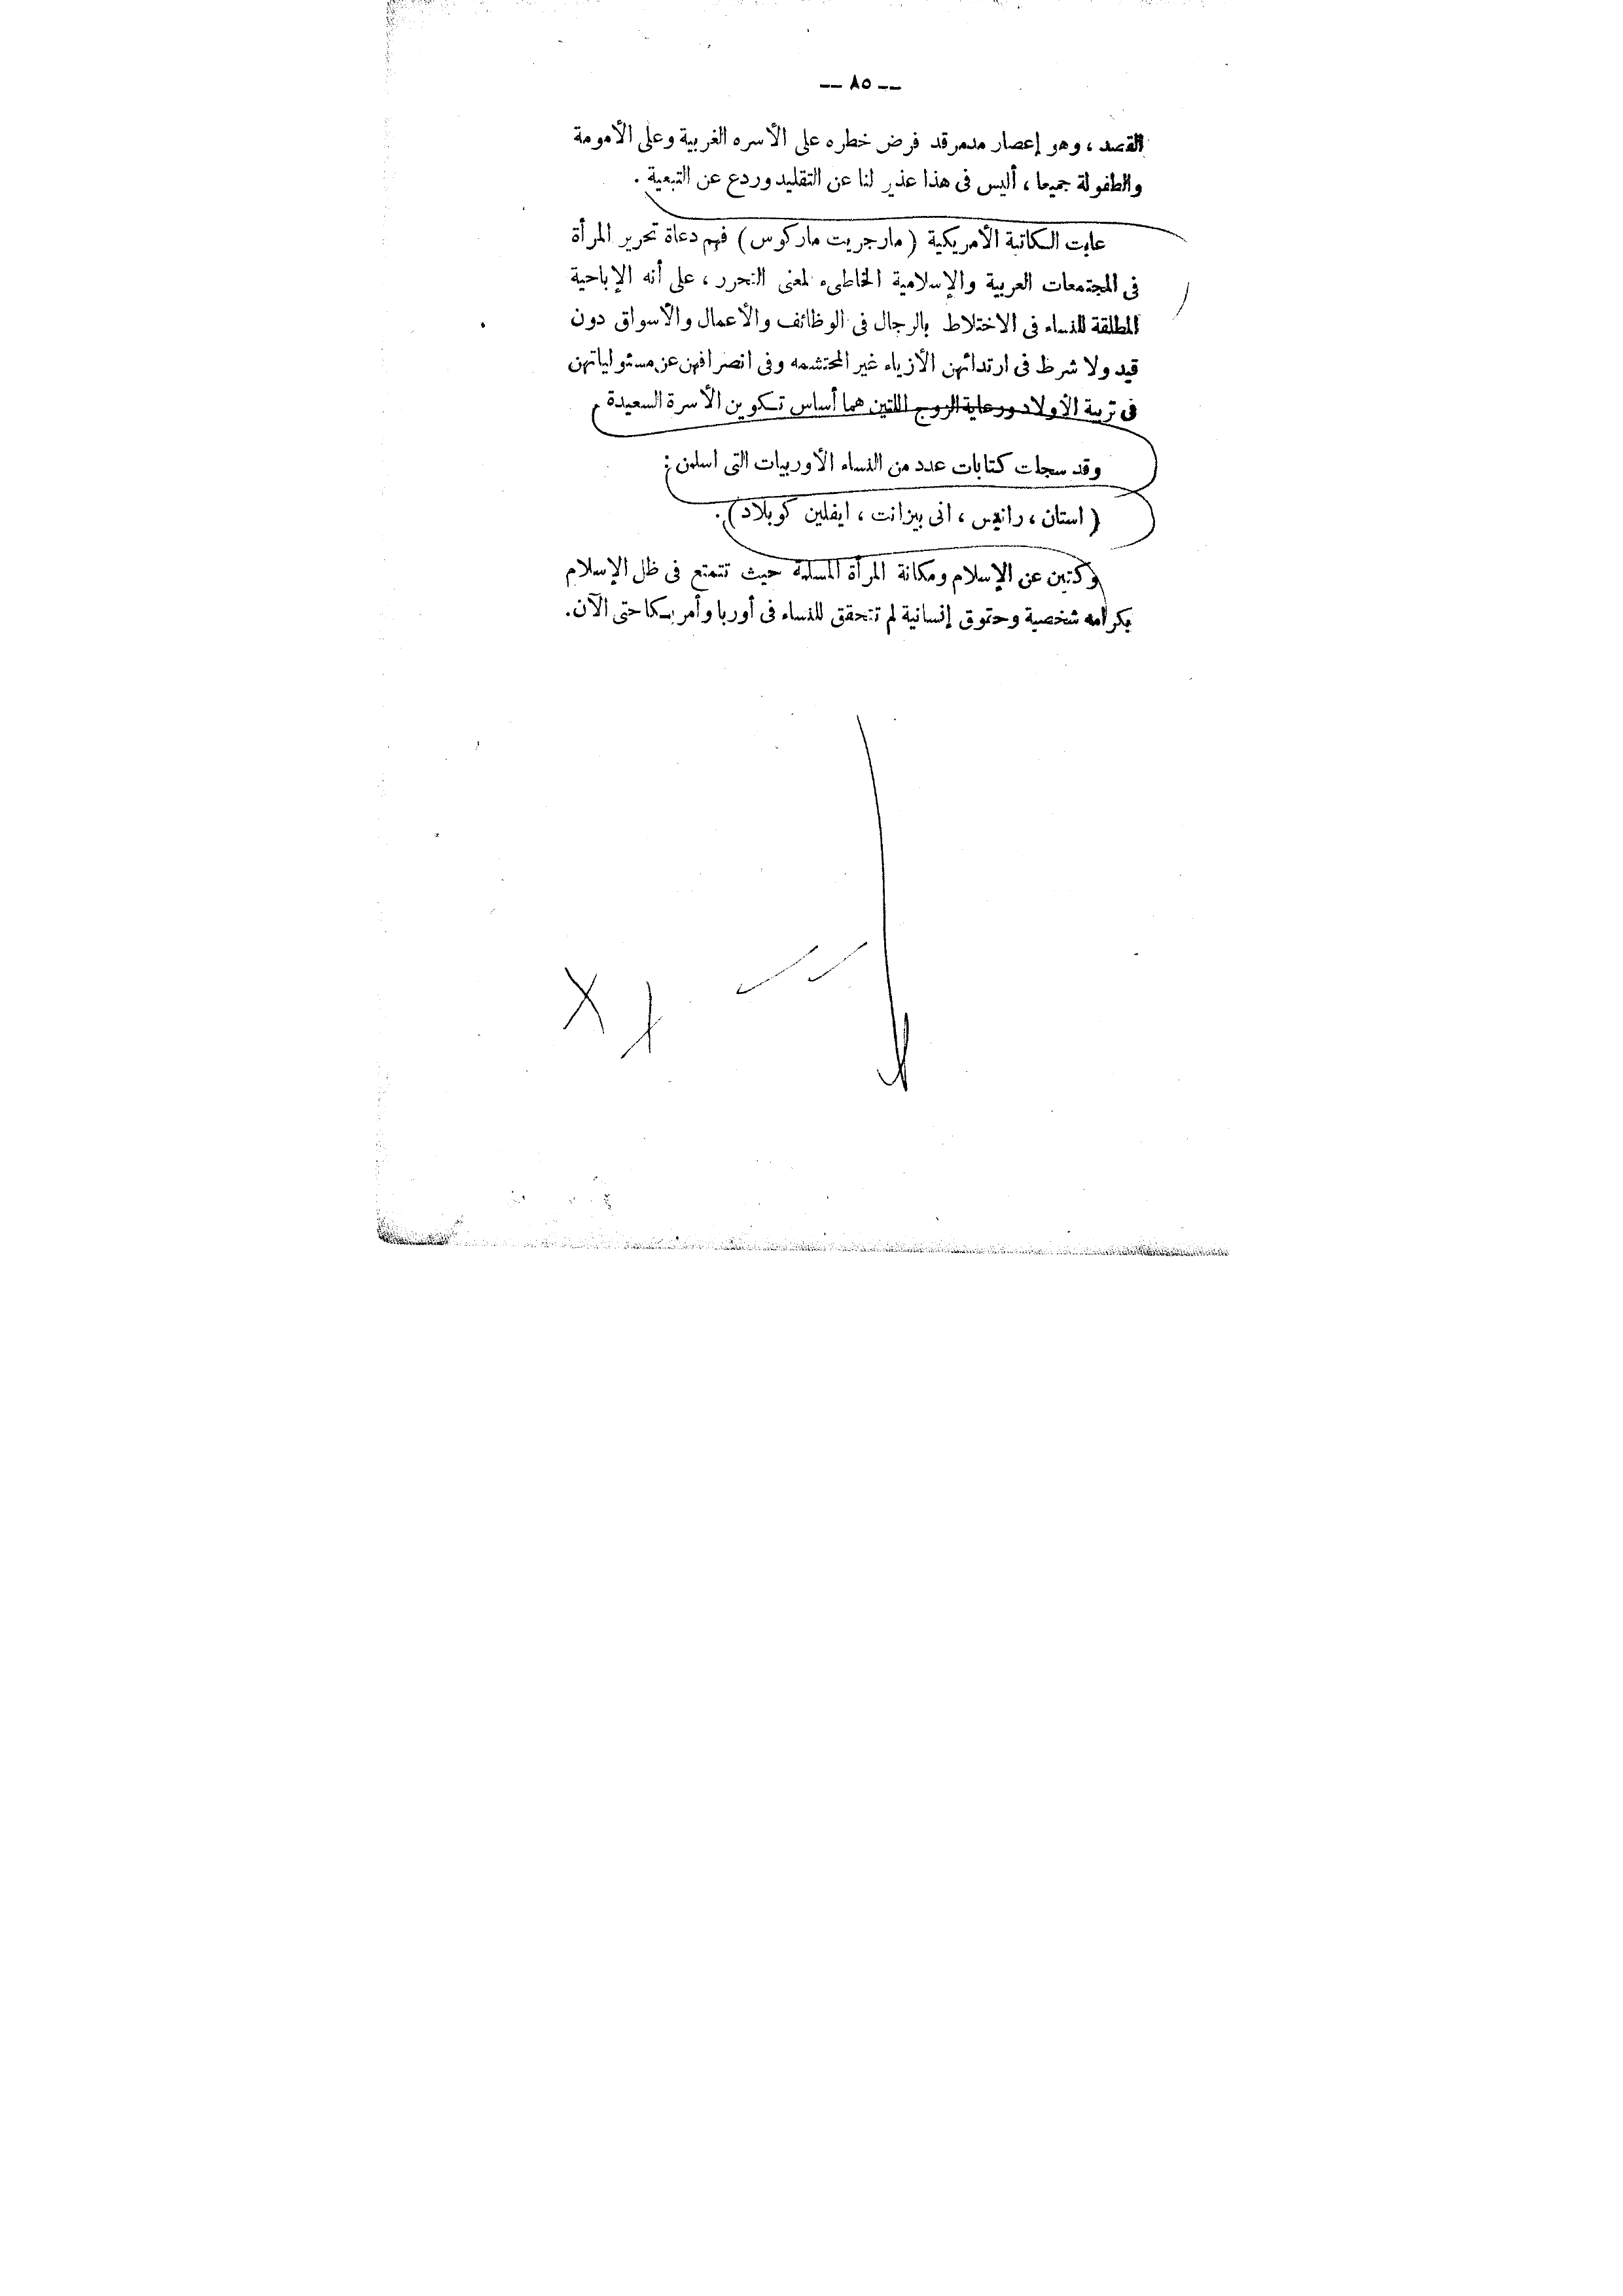 — ٨٥ —
القصد ، وهو إعصار مدمر قد فرض خطره على الأسره الغربية وعلى الأمومة
والطفولة جميعا ، أليس فى هذا عذير لنا عن التقليد وردع عن التبعية .
عابت الكاتبة الأمريكية ( مارجريت ماركوس ) فهم دعاة تحرير المرأة
فى المجتمعات العربية والإسلامية الخاطىء لمعنى التحرر ، على أنه الإباحية
المطلقة للنساء فى الاختلاط بالرجال فى الوظائف والأعمال والأسواق دون
قيد ولا شرط فى ارتدائهن الأزياء غير المحتشمه وفى انصرافهن عن مسئولياتهن
فى تربية الأولاد ورعاية الزوج اللتين هما أساس تكوين الأسرة السعيدة .
وقد سجلت كتابات عدد من النساء الأوربيات التى اسلمن :
( استان ، رانفس ، انى بيزانت ، ايفلين كوبلاد ) .
وكتبن عن الإسلام ومكانة المرأة المسلمة حيث تتمتع فى ظل الإسلام
بكرامه شخصية وحقوق إنسانية لم تتحقق للنساء فى أوربا وأمريكا حتى الآن .